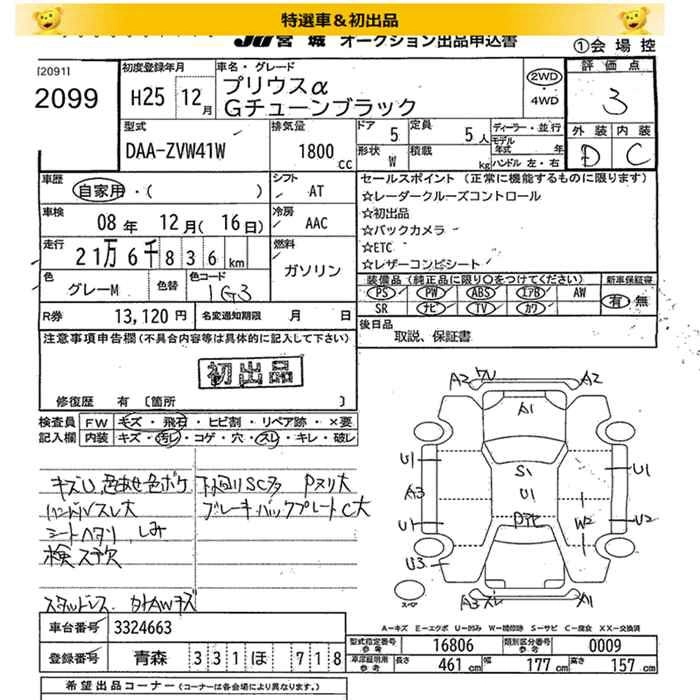 特選車＆初出品
JU宮城 オークション出品申込書
①会場控
[2091]
2099
初度登録年月
H25 12月
車名・グレード
プリウスα
Gチューンブラック
2WD
・
4WD
評価点
3
外装 内装
D C
型式
DAA-ZVW41W
排気量
1800 cc
ドア 5
定員 5人
形状 W
積載 kg
ディーラー・並行
モデル年式 年
ハンドル 左・右
車歴
自家用・( )
シフト AT
車検
08年 12月(16日)
冷房 AAC
走行
21万6千836km
燃料
ガソリン
色
グレーM
色替
色コード
1G3
R券 13,120円
名変通知期限 月 日
セールスポイント (正常に機能するものに限ります)
☆レーダークルーズコントロール
☆初出品
☆バックカメラ
☆ETC
☆レザーコンビシート
装備品 (純正品に限り○をつけてください)
PS PW ABS エアB AW
SR ナビ TV カワ
新車保証書
有・無
後日品
取説、保証書
注意事項申告欄 (不具合内容等は具体的に記入して下さい)
初出品
修復歴 有 〔箇所 〕
検査員記入欄
FW キズ・飛石・ヒビ割・リペア跡・×要
内装 キズ・汚レ・コゲ・穴・スレ・キレ・破レ
キズU 色あせ色ボケ
下廻りSC多 Pヌリ大
ハンドルスレ大
ブレーキバックプレートC大
シートヘタリ、しみ
検ステ欠
スタッドレス、外AWキズ
A2 ワレ A2
A1
U1 S1 U1
A3 U1
U1 Pアセ W2 U2
U3
スペア
A3スレ A1
A－キズ E－エクボ U－凹み W－補修跡 S－サビ C－腐食 XX－交換済
車台番号 3324663
登録番号 青森 331 ほ 718
型式指定番号 参考 16806
類別区分番号 参考 0009
車庫証明用 参考 長さ 461cm 幅 177cm 高さ 157cm
希望出品コーナー (コーナーは各会場により異なります。)